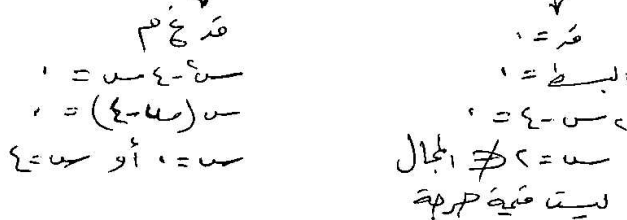 قَ = ٠
البسط = ٠
٢س - ٤ = ٠
س = ٢ ∉ المجال
ليست قيمة حرجة
قَ غ م
س² - ٤س = ٠
س(س - ٤) = ٠
س = ٠ أو س = ٤